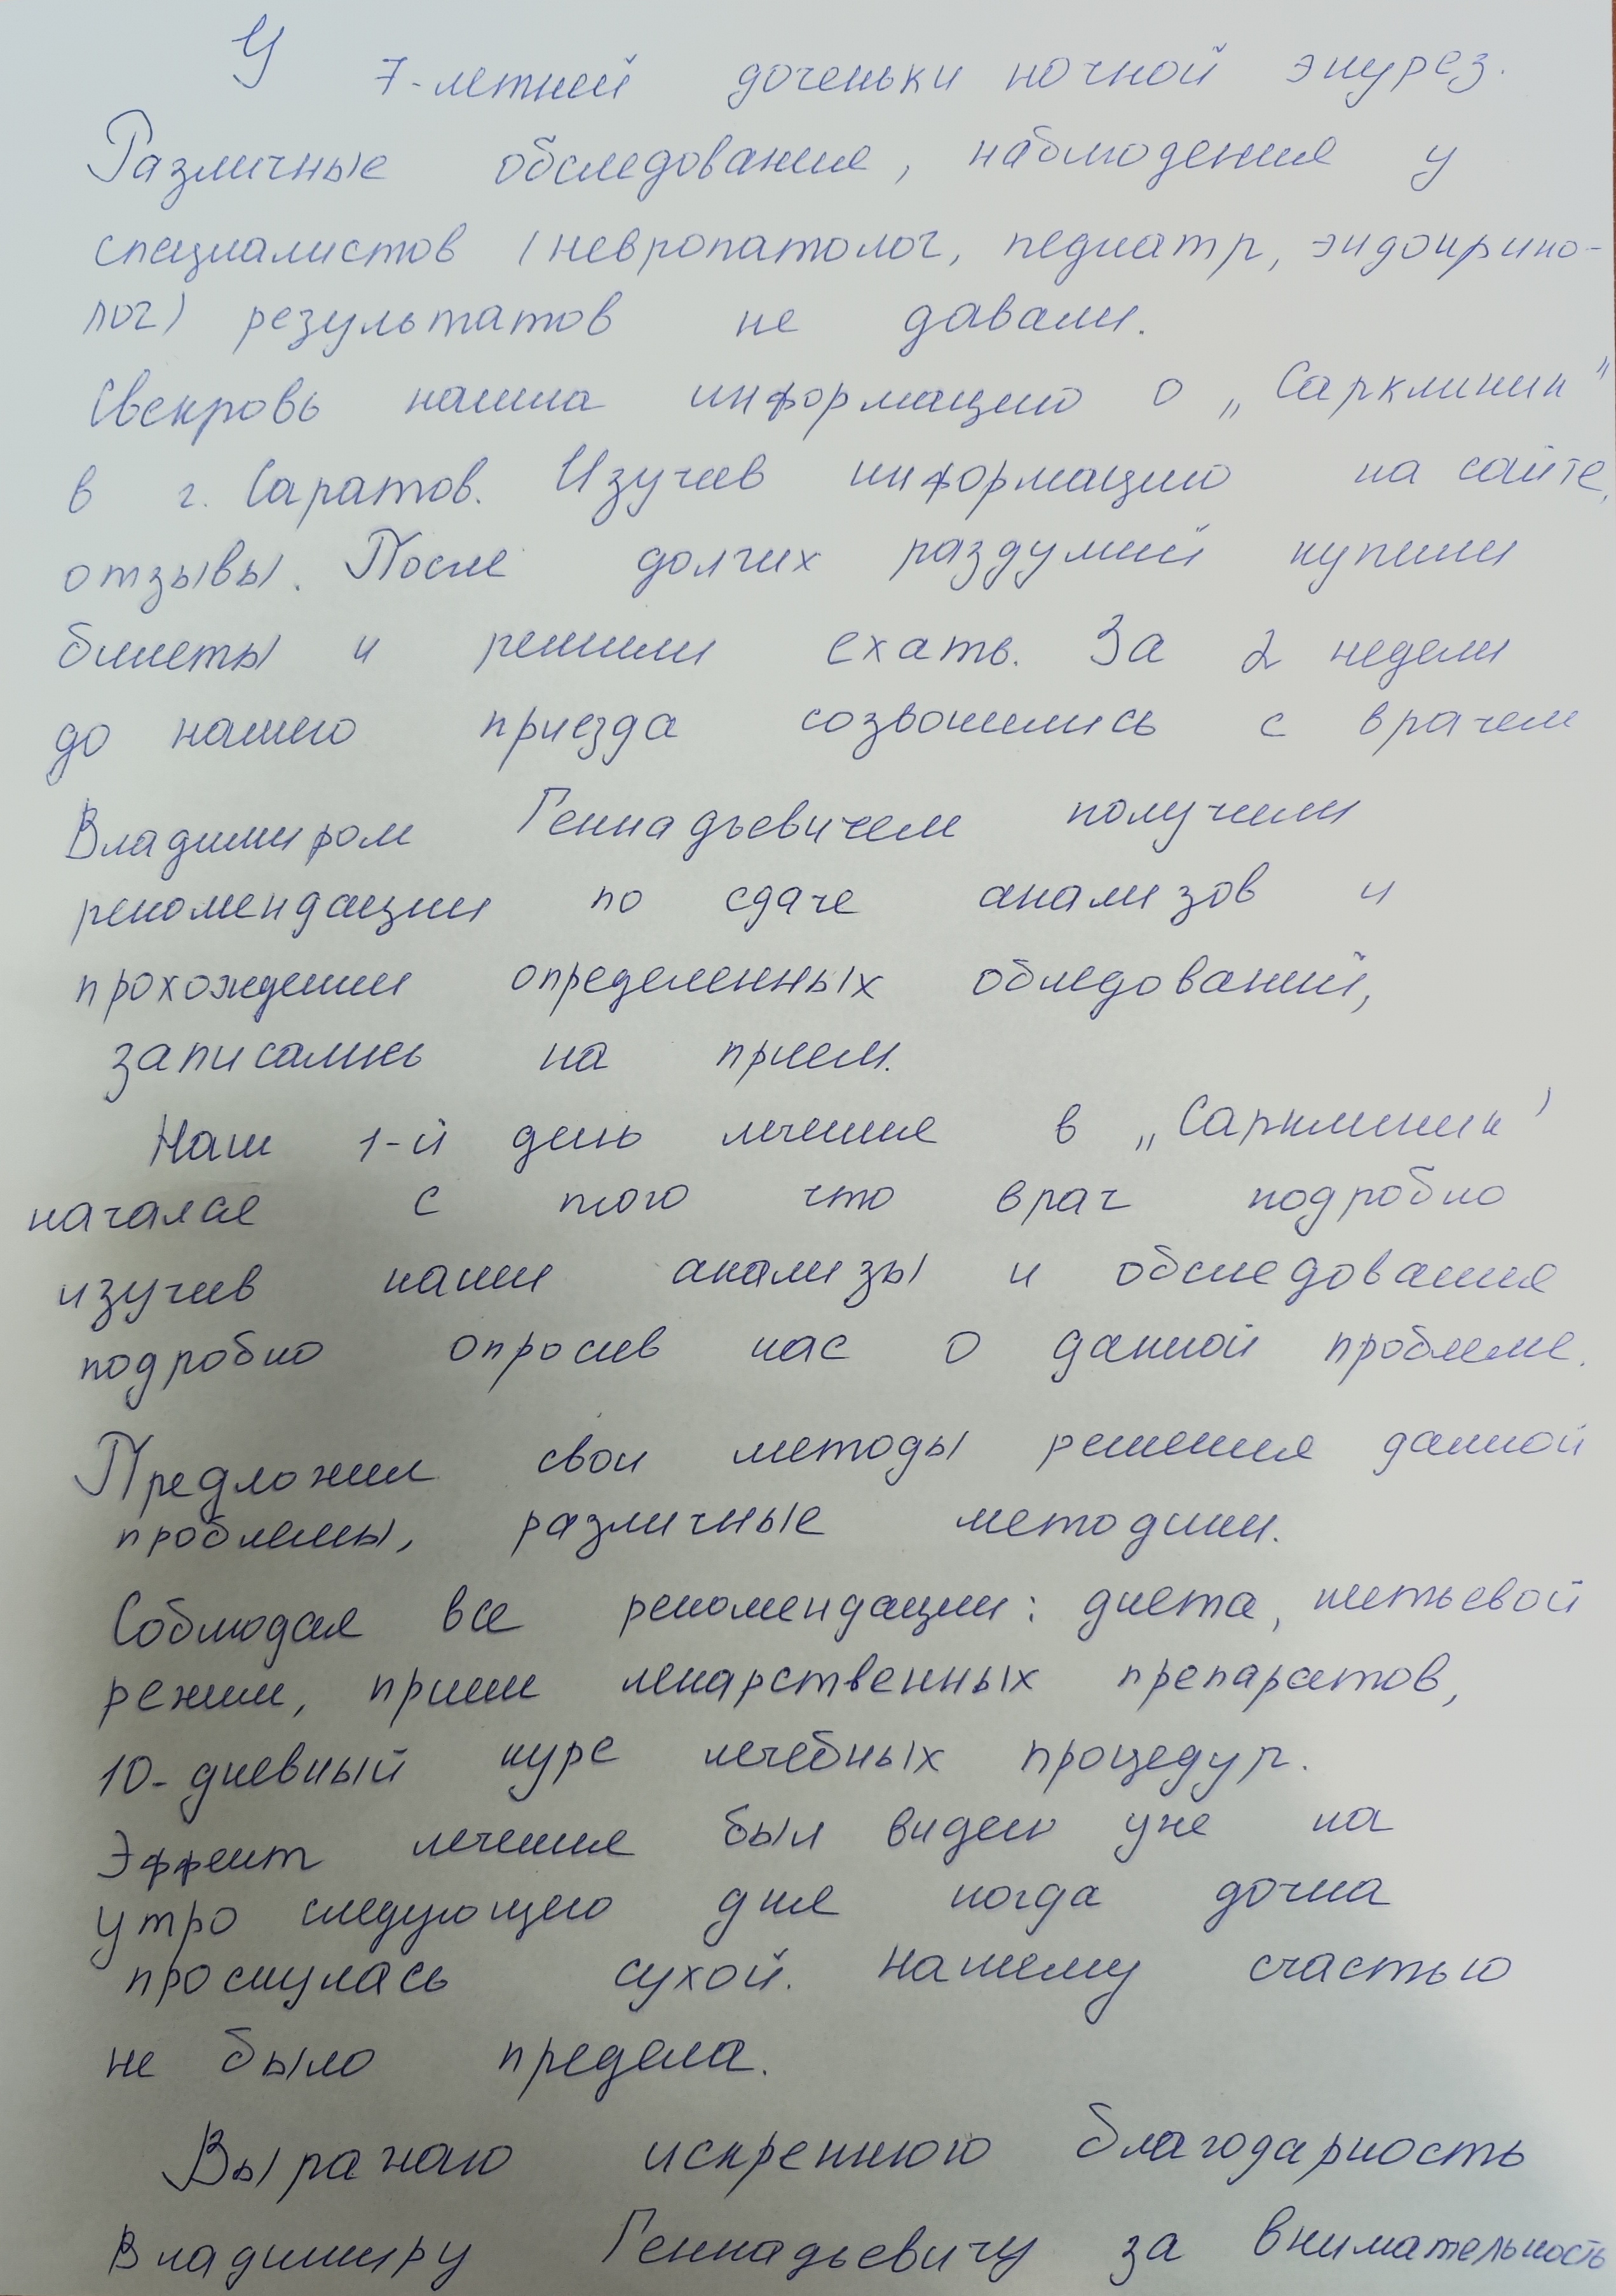 У 7-летней доченьки ночной энурез.
Различные обследования, наблюдения у
специалистов (невропатолог, педиатр, эндокрино-
лог) результатов не давали.
Свекровь нашла информацию о „Сарклиник"
в г. Саратов. Изучив информацию на сайте,
отзывы. После долгих раздумий купили
билеты и решили ехать. За 2 недели
до нашего приезда созвонились с врачем
Владимиром Геннадьевичем получили
рекомендации по сдаче анализов и
прохождении определенных обледований,
записались на прием.
Наш 1-й день лечения в „Сарклиник'
начался с того что врач подробно
изучив наши анализы и обследования
подробно опросив нас о данной проблеме.
Предложил свои методы решения данной
проблемы, различные методики.
Соблюдая все рекомендации: диета, питьевой
режим, прием лекарственных препаратов,
10-дневный курс лечебных процедур.
Эффект лечения был виден уже на
утро следующего дня когда дочка
проснулась сухой. Нашему счастью
не было предела.
Выражаю искреннюю благодарность
Владимиру Геннадьевичу за внимательность